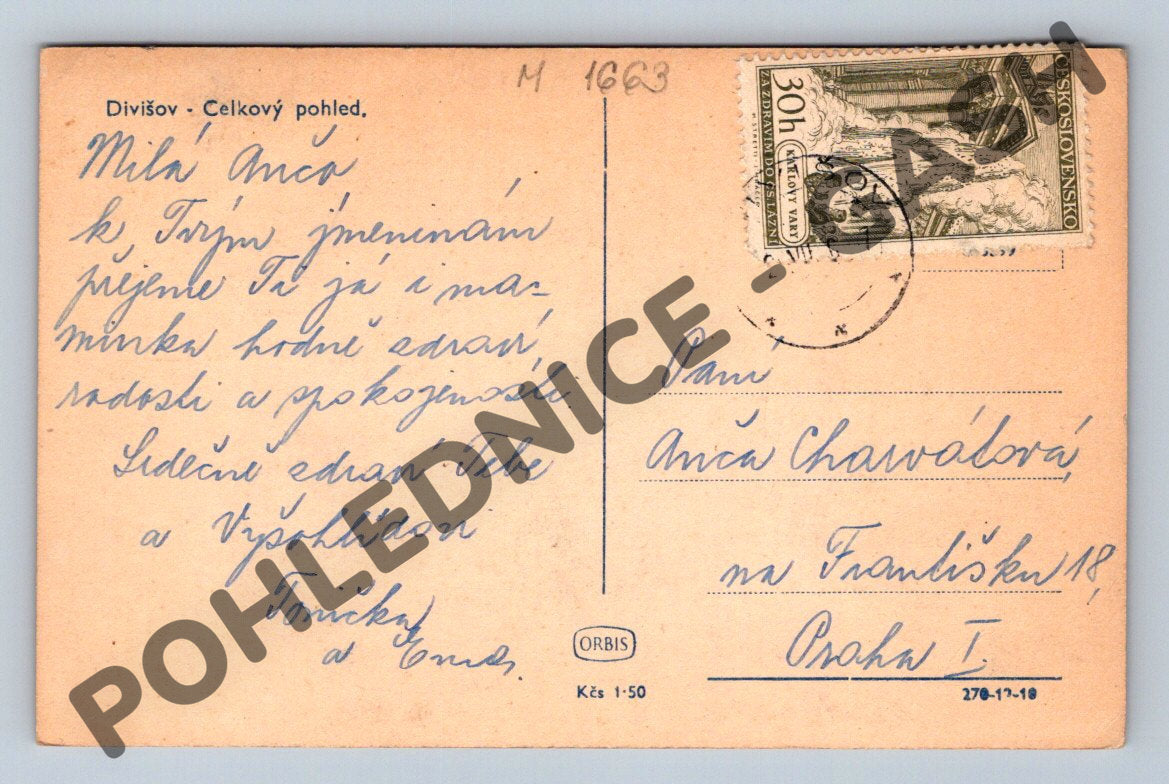 M 1663
Divišov - Celkový pohled.
Milá Anča
k Tvým jmeninám
přejeme Ti já i ma-
minka hodně zdraví,
radosti a spokojenosti.
Srdečně zdraví Tebe
a
Tonička
a
ČESKOSLOVENSKO
30h
KARLOVY VARY
ZA ZDRAVÍM DO ČS. LÁZNÍ
Paní
Anča Charvátová,
na Františku 18,
Praha I.
ORBIS
Kčs 1·50
POHLEDNICE -